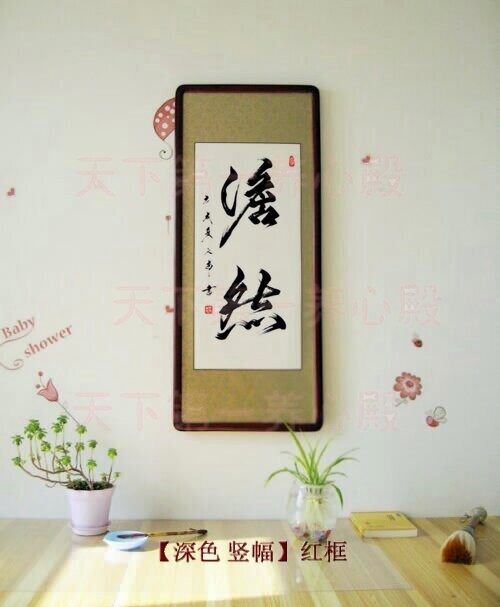 天下第一养心殿
澹然
天下第一养心殿
Baby
shower
天下第一养心殿
【深色 竖幅】红框